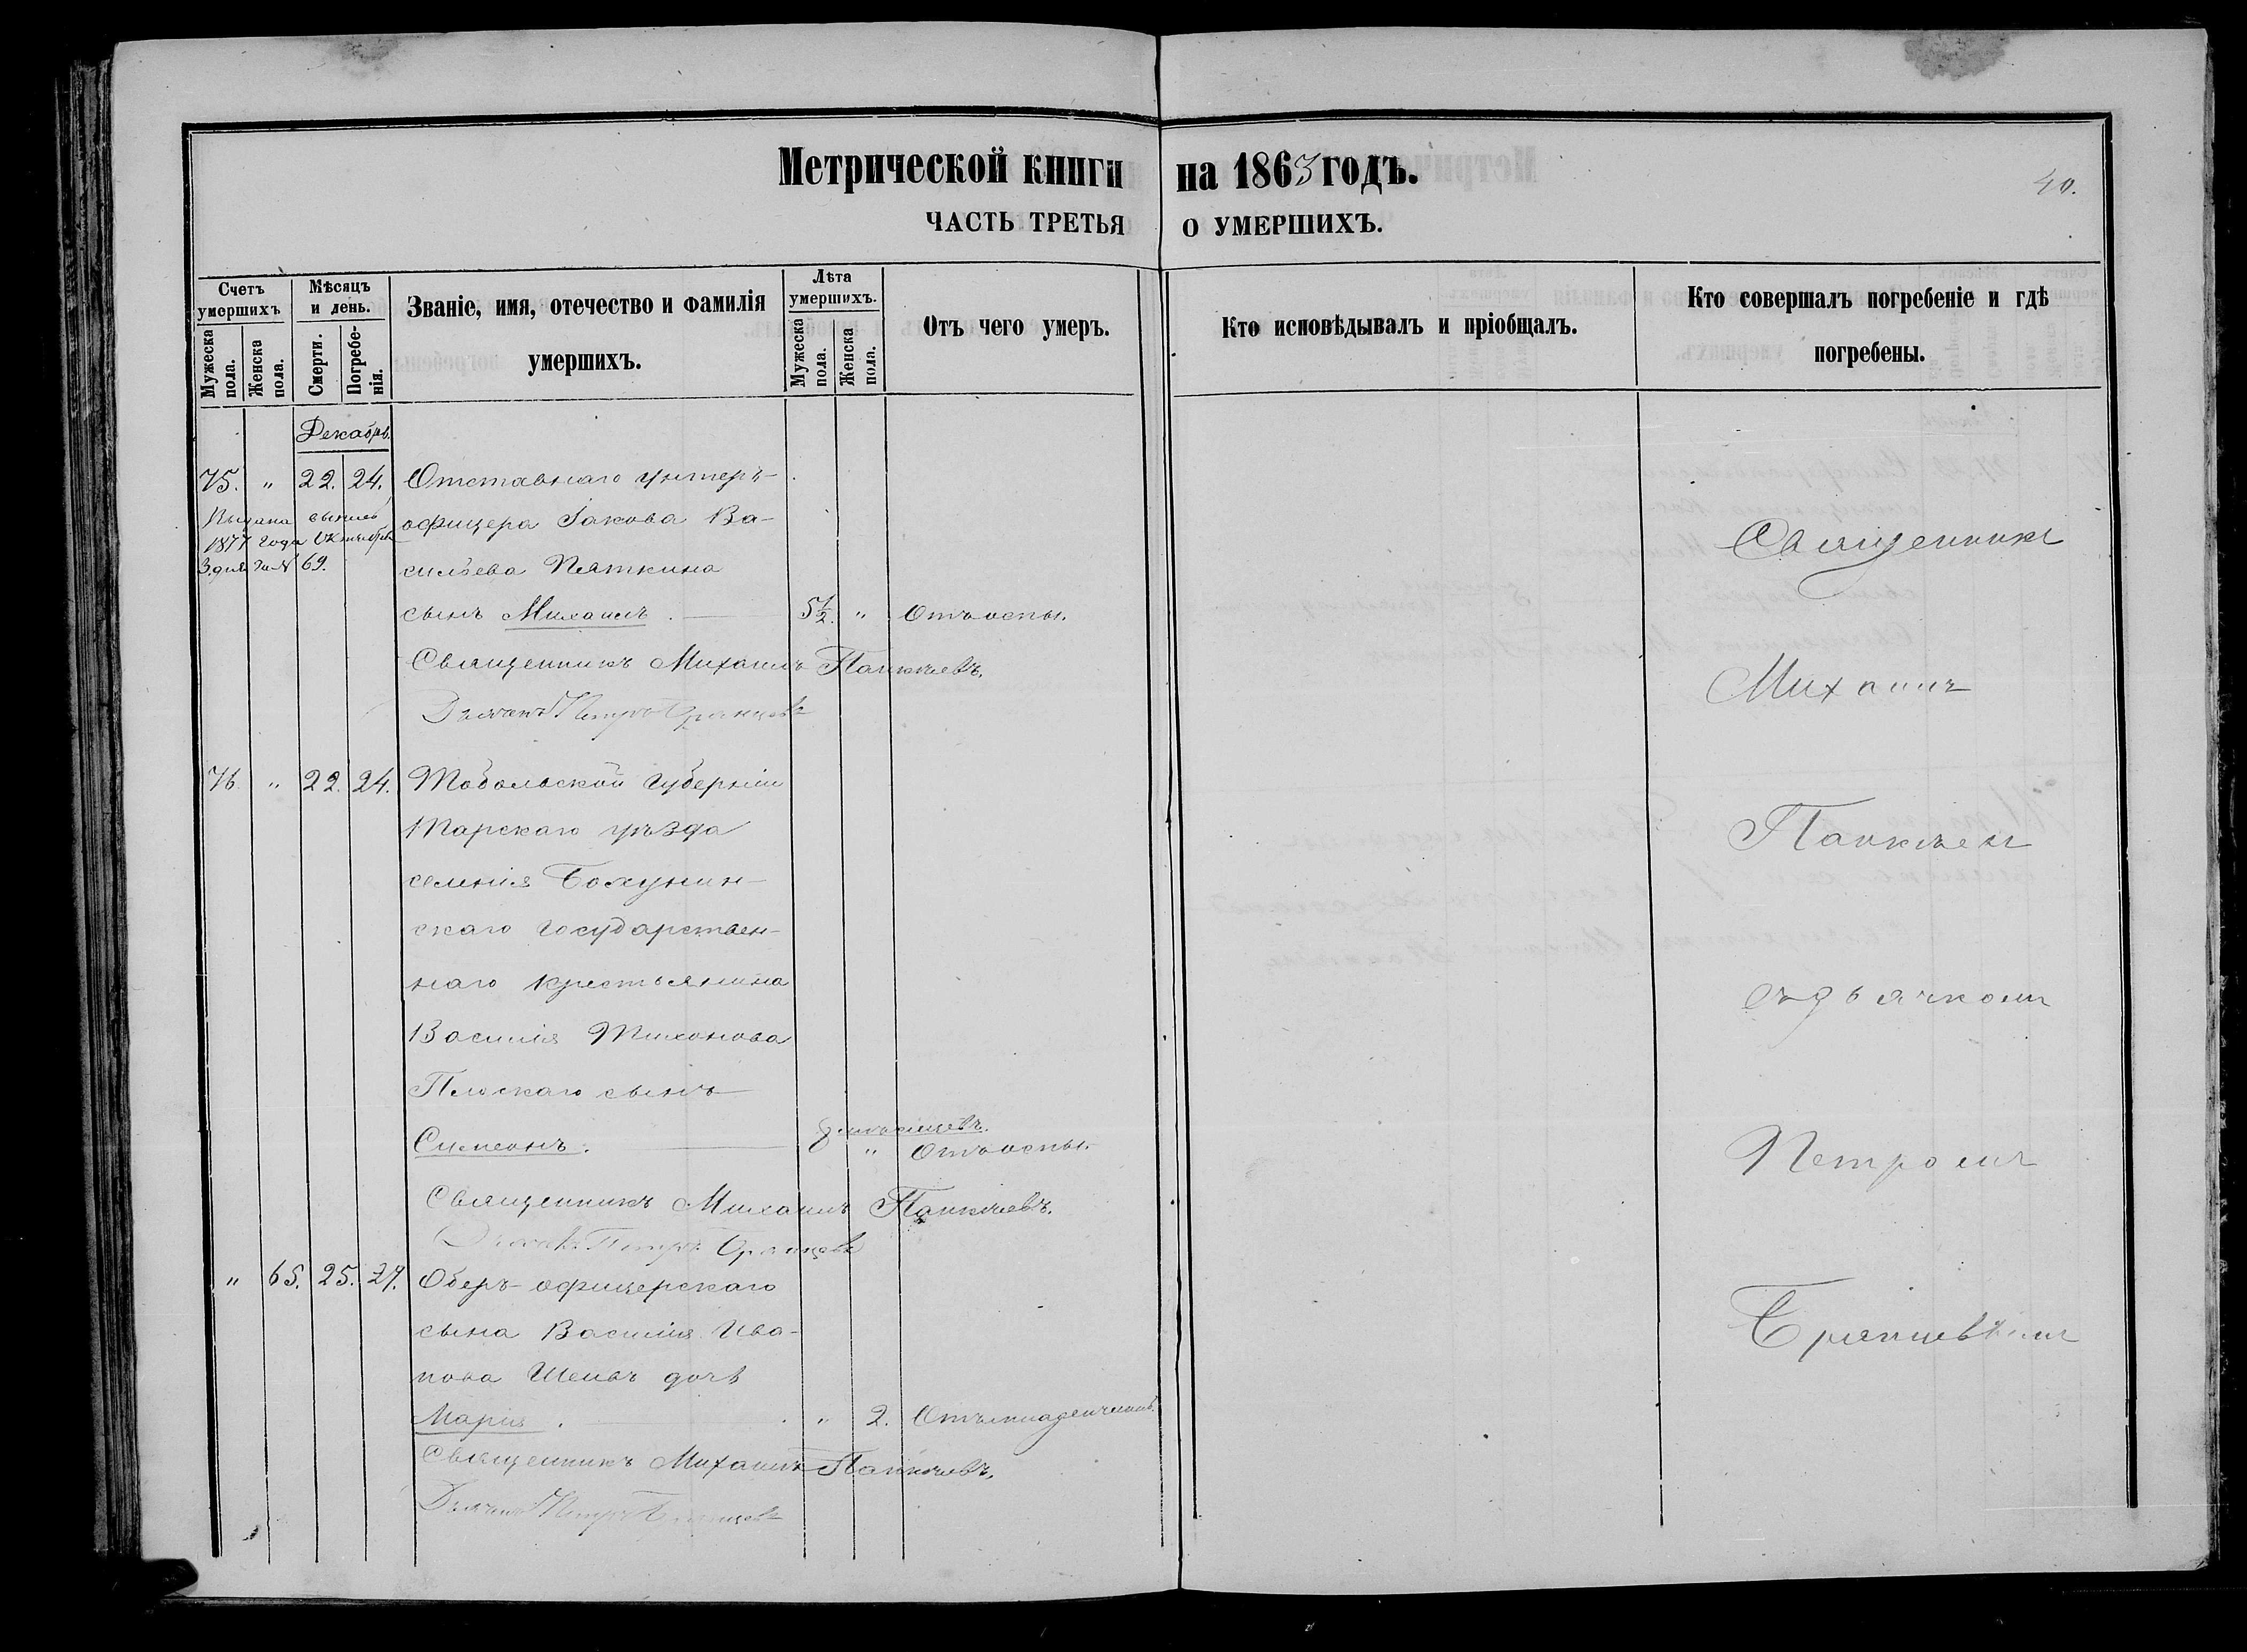 Метрической книги на 1863 годъ.
40.
ЧАСТЬ ТРЕТЬЯ О УМЕРШИХЪ.
Счетъ умершихъ
Мужеска пола.
Женска пола.
Мѣсяцъ и день.
Смерти.
Погребенія.
Званіе, имя, отечество и фамилія
умершихъ.
Лѣта умершихъ.
Мужеска пола.
Женска пола.
Отъ чего умеръ.
Кто исповѣдывалъ и пріобщалъ.
Кто совершалъ погребеніе и гдѣ
погребены.
Декабрь.
75. " 22. 24. Отставнаго унтеръ-
офицера Іакова Ва-
сильева Пяткина
сынъ Михаилъ. 5½. " Отъ оспы.
1877 года Октября
3 дня за № 69.
Священникъ Михаилъ
Дьячекъ Петръ
76. " 22. 24. Тобольской Губерніи
Тарскаго уѣзда
селенія
скаго Государствен-
наго крестьянина
Василія Тихонова
Плоскаго сынъ
Симеонъ. 8 мѣсяцевъ. " Отъ оспы.
Священникъ Михаилъ
Дьячекъ Петръ
" 65. 25. 27. Оберъ-офицерскаго
сына Василія Ива-
нова дочь
Марія. " 2. Отъ младенческой.
Священникъ Михаилъ
Дьячекъ Петръ
Священникъ
Михаилъ
съ дьячкомъ
Петромъ